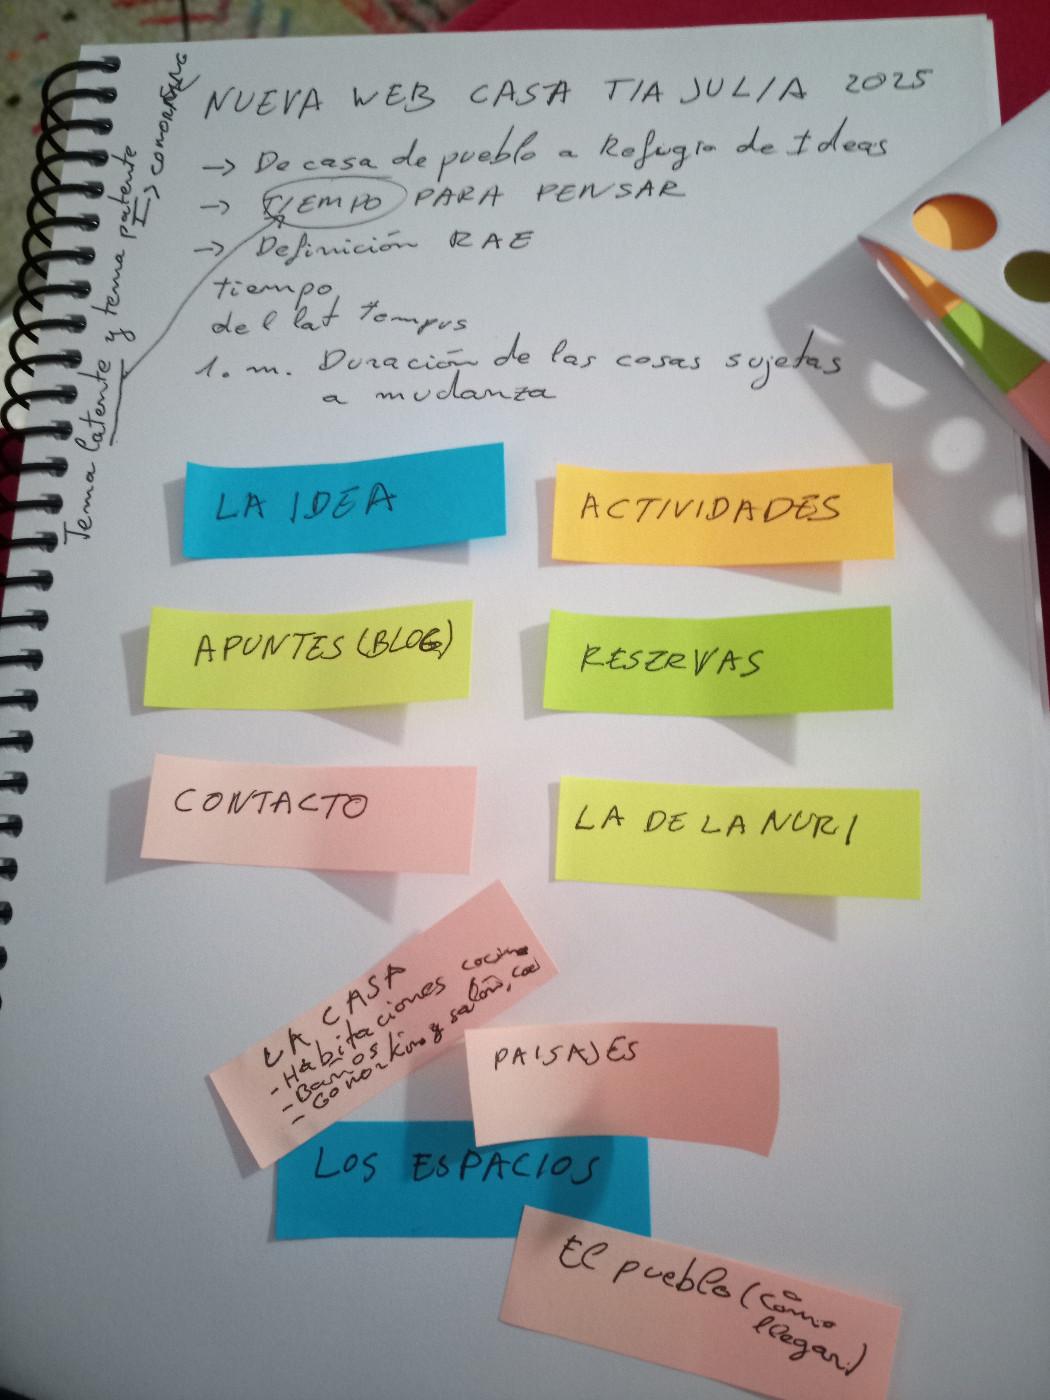 NUEVA WEB CASA TIA JULIA 2025
-> De casa de pueblo a Refugio de Ideas
-> TIEMPO PARA PENSAR
-> Definición RAE
tiempo
del lat tempus
1. m. Duración de las cosas sujetas
a mudanza
Tema latente y tema patente
LA IDEA
ACTIVIDADES
APUNTES (BLOG)
RESERVAS
CONTACTO
LA DE LA NURI
LA CASA
- Habitaciones cocina
- Baños
- Coworking y salón,
PAISAJES
LOS ESPACIOS
El pueblo (cómo
llegar)